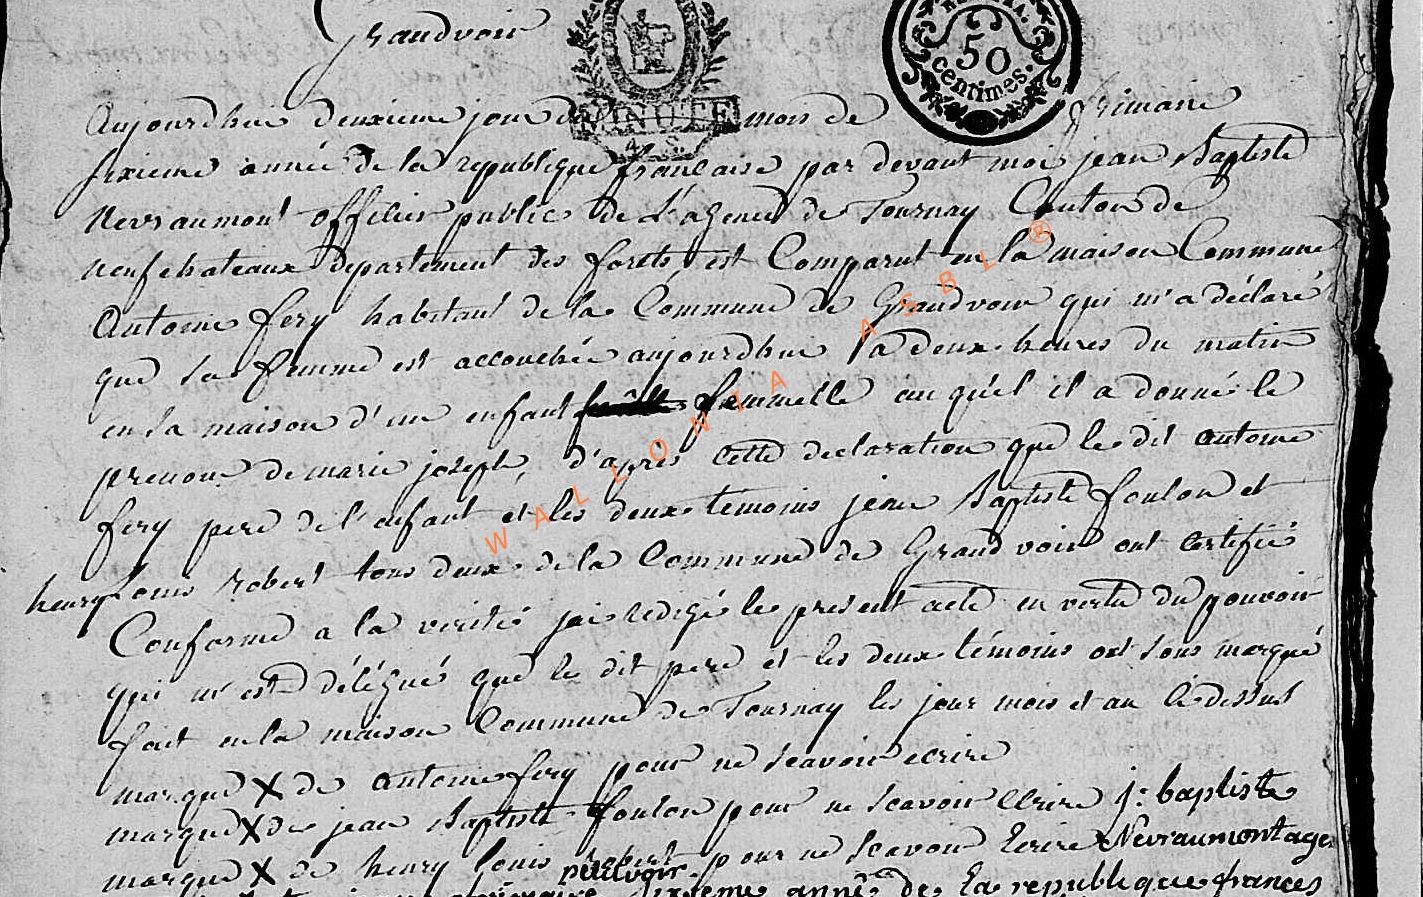 Grandvoir
50
centimes.
MINUTE
Aujourdhuie deuxieme jour du mois de frimaire
sixieme année de la republique francaise par devant moi jean Baptiste
Nevraumont officier public de L'agence de Tournay Canton de
neufchateaux departement des forets, est Comparut en la maison Commune
Antoine fery habitant de la Commune de Grandvoir qui m'a déclaré
que sa femme est accouchée aujourdhui a deux heures du matin
en sa maison d'un enfant femmelle auquel il a donné le
prenom de marie joseph, d'apres cette declaration que le dit antoine
fery pere de l'enfant et les deux temoins jean Baptiste foulon et
henry Louis robert tous deux de la Commune de Grandvoir ont certifié
Conforme a la verité jai redigé le present acte en vertu du pouvoir
qui m'est délégué que le dit pere et les deux témoins ont sous marqué
fait en la maison Commune de Tournay les jour mois et an ci dessus
marque X de antoine fery pour ne scavoir ecrire
marque X de jean Baptiste foulon pour ne scavoir Ecrire j: baptiste
marque X de henry louis robert pour ne scavoir Ecrire Nevraumont agen
petitvoir
sixieme année de La republique frances
WALLONIA ASBL ®